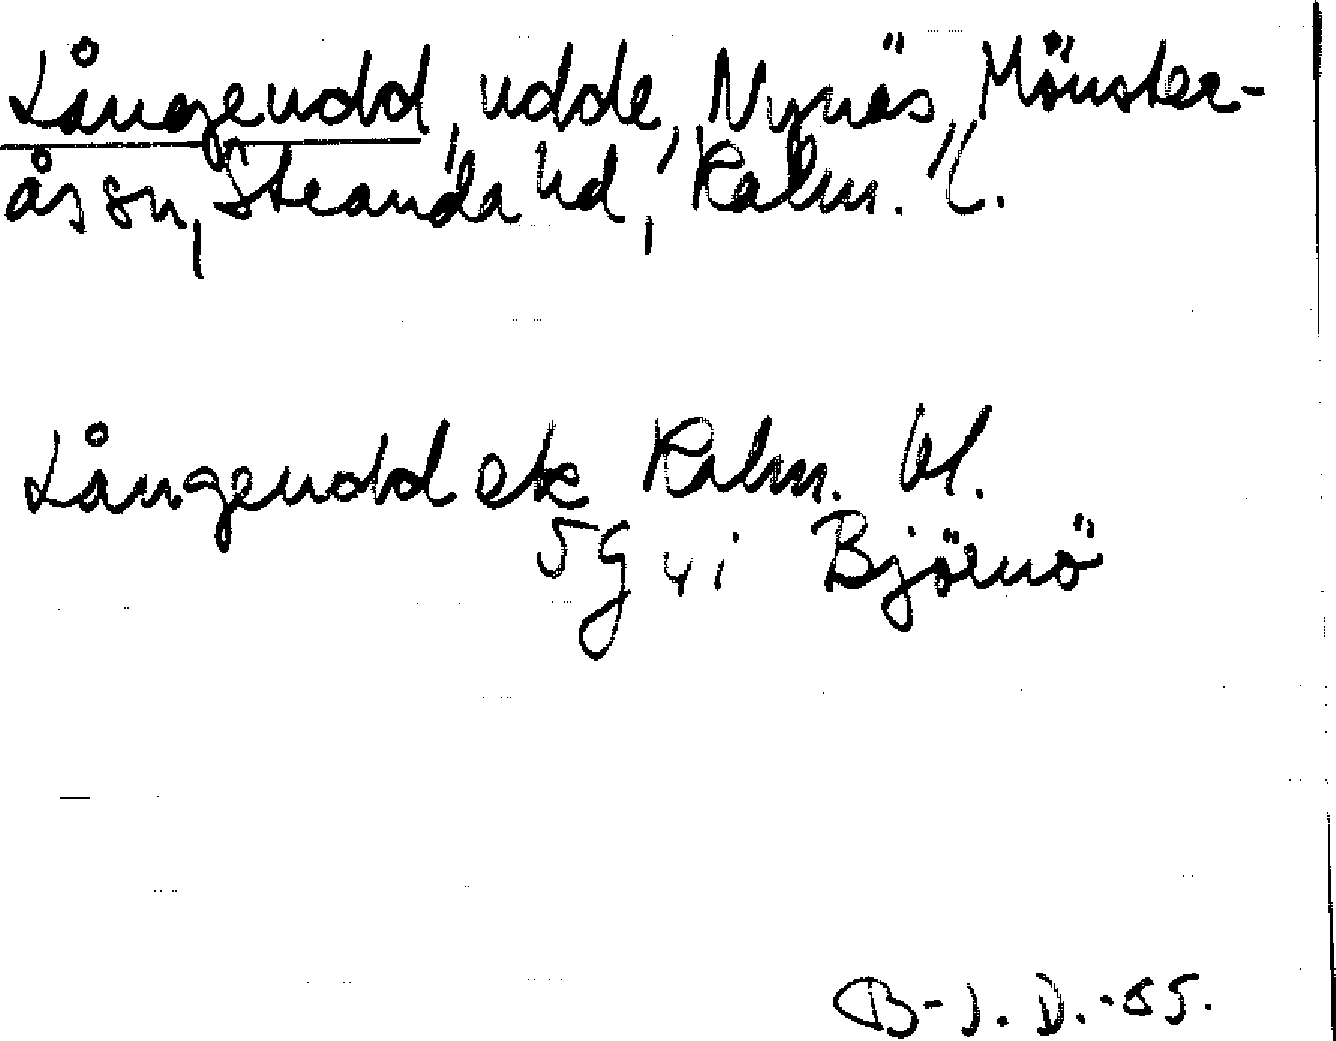 Långeudd, udde, Nynäs, Mönster-
ås sn, Stranda hd, Kalm. l.
Långeudd ek Kalm. bl.
5 g 4 i Björnö
B-I. D. -85.